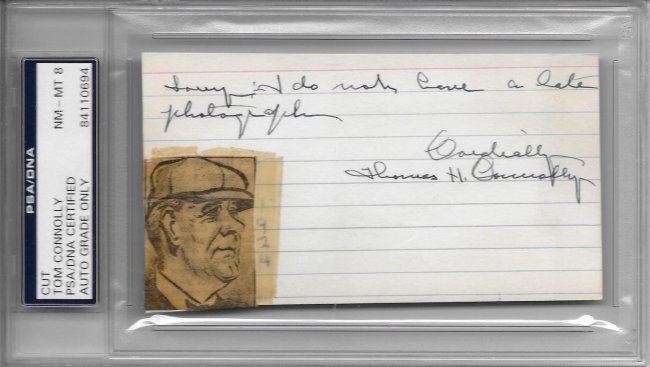 PSA/DNA
CUT
TOM CONNOLLY
PSA/DNA CERTIFIED
AUTO GRADE ONLY
NM - MT 8
84110694
Sorry, I do not have a late
photograph
Cordially
Thomas H. Connolly
1924